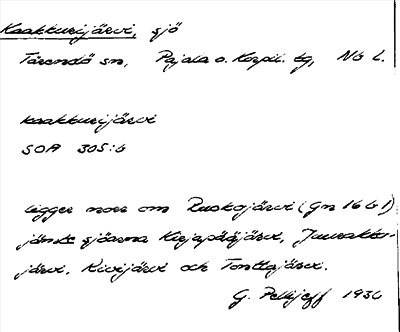 Kaakkurijärvi, sjö
Tärendö sn, Pajala o. Korpil. tg, Nb L.
kaakkurijärvi
SOA 305:6
ligger norr om Ruskojärvi (Gn 16 b 1)
jämte sjöarna Kirjapääjärvi, Juurakko-
järvi, Kivijärvi och Tonttajärvi.
G. Pellijeff 1936